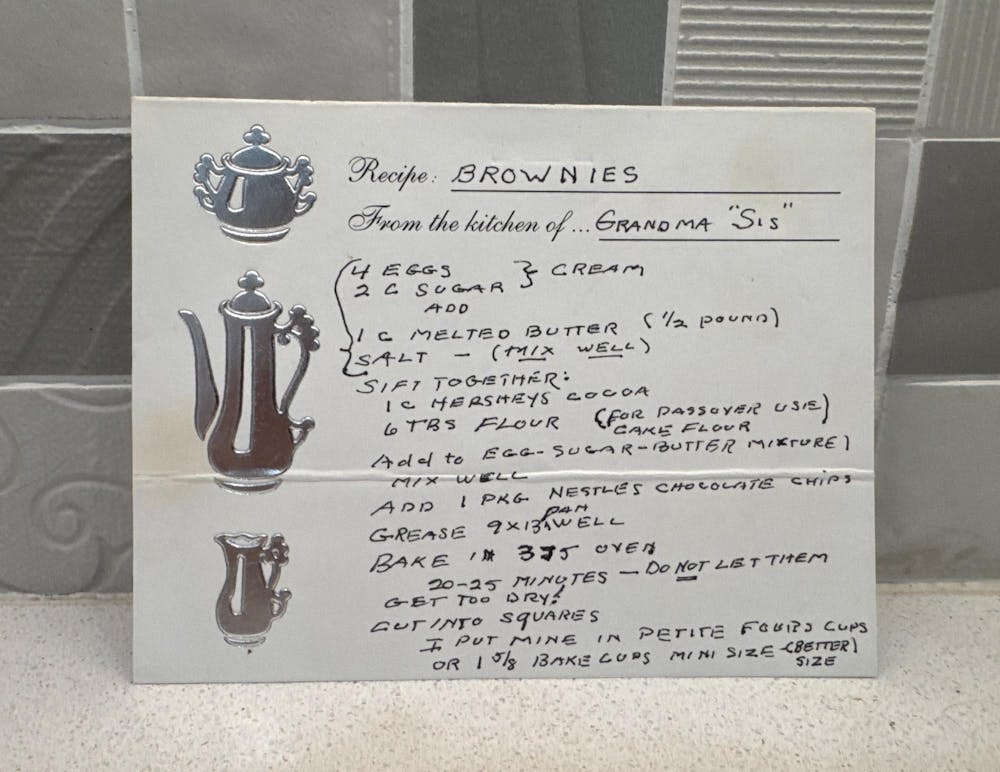 Recipe: BROWNIES
From the kitchen of ... GRANDMA "SIS"
4 EGGS } CREAM
2 C SUGAR
ADD
1 C MELTED BUTTER (1/2 POUND)
SALT - (MIX WELL)
SIFT TOGETHER:
1 C HERSHEYS COCOA
6 TBS FLOUR (FOR PASSOVER USE)
CAKE FLOUR
Add to EGG-SUGAR-BUTTER MIXTURE)
MIX WELL
ADD 1 PKG NESTLES CHOCOLATE CHIPS
GREASE 9X13 PAN WELL
BAKE IN OVEN
20-25 MINUTES - DO NOT LET THEM
GET TOO DRY!
CUT INTO SQUARES
I PUT MINE IN PETITE CUPS
OR 1 5/8 BAKE CUPS MINI SIZE - (BETTER)
SIZE